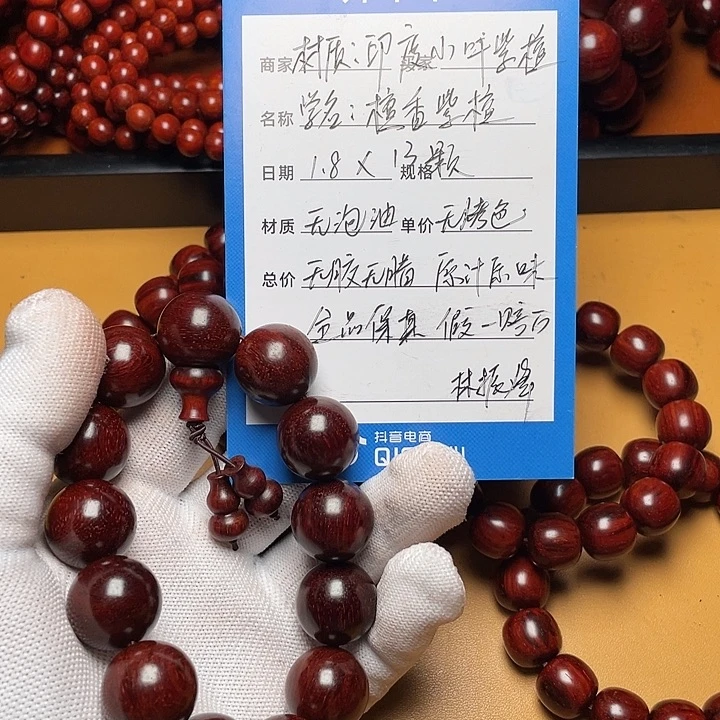 商家 材质:印度小叶紫檀
名称 学名:檀香紫檀
日期 1.8 X 13颗 规格
材质 无泡油 单价 无烤色
总价 无胶无腊 原汁原味
全品保真 假一赔万
林振
抖音电商